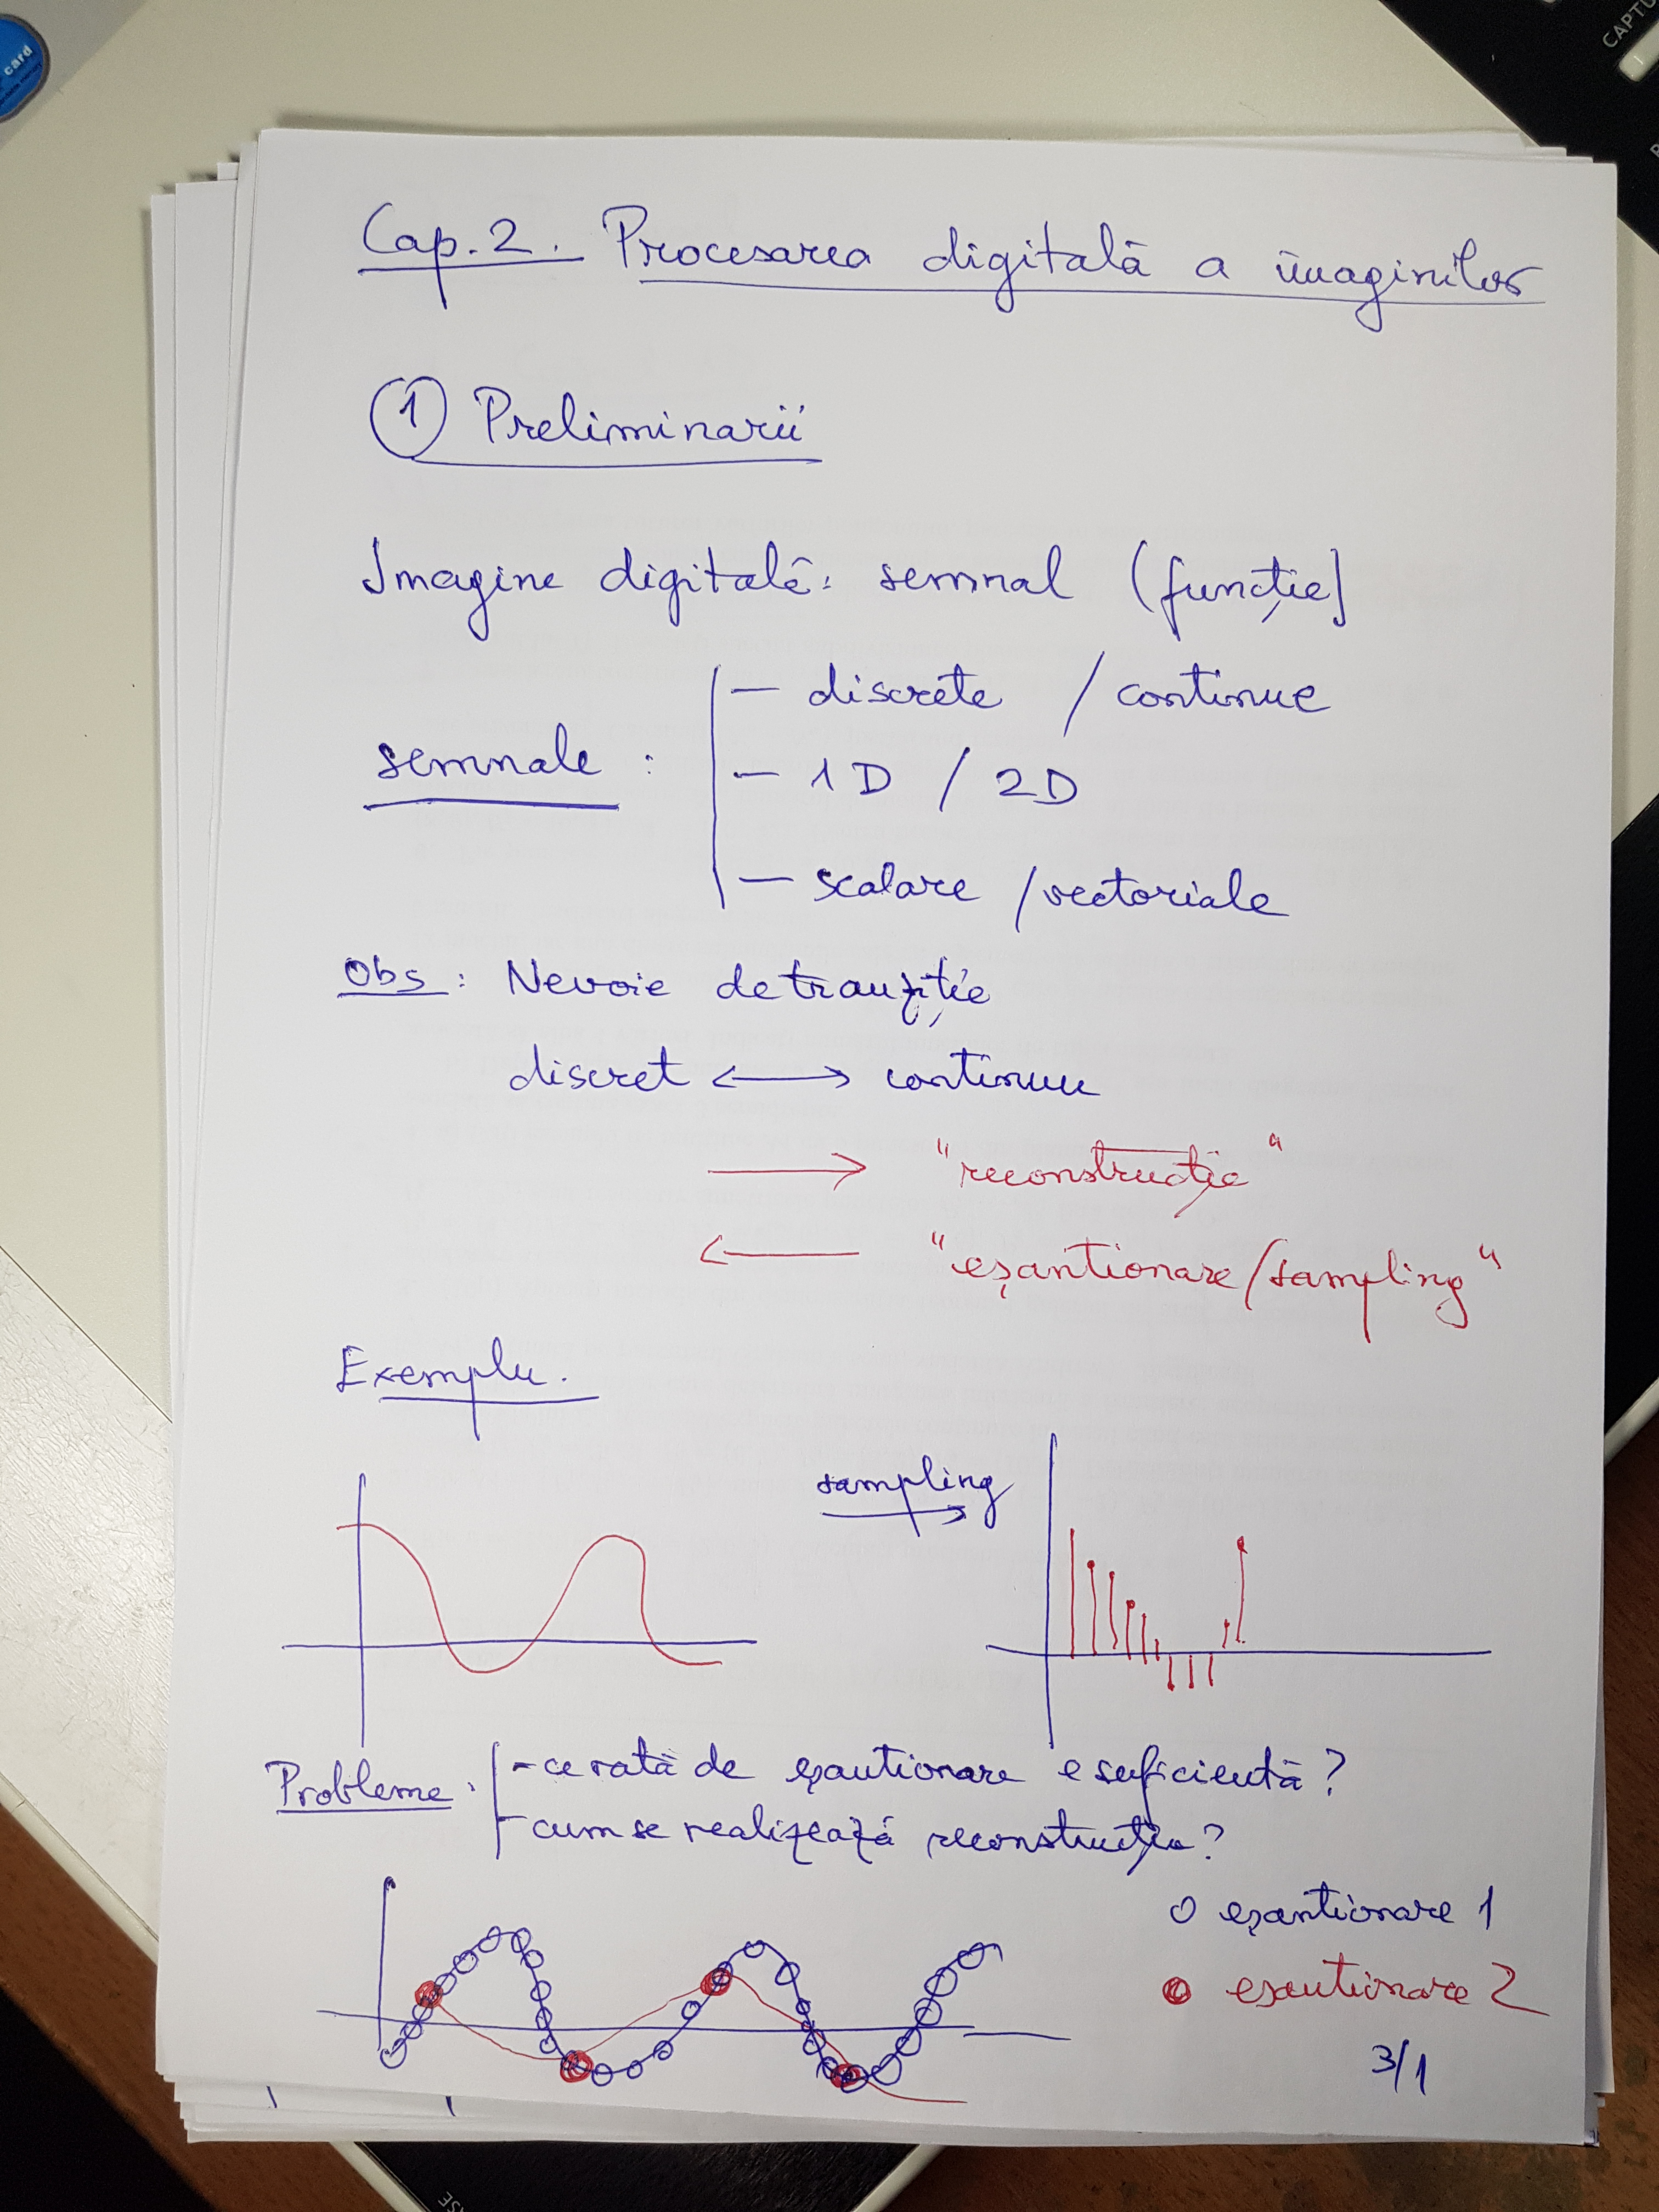 card
CAPTU
Cap. 2. Procesarea digitală a imaginilor
1 Preliminarii
Imagine digitală: semnal (funcție]
semnale :
— discrete / continue
— 1D / 2D
— scalare / vectoriale
Obs : Nevoie de tranziție
discret ⟷ continuu
⟶ "reconstrucție"
⟵ "eșantionare/sampling"
Exemplu.
sampling
Probleme :
- ce rată de eșantionare e suficientă ?
- cum se realizează reconstrucția ?
o eșantionare 1
● eșantionare 2
3/1